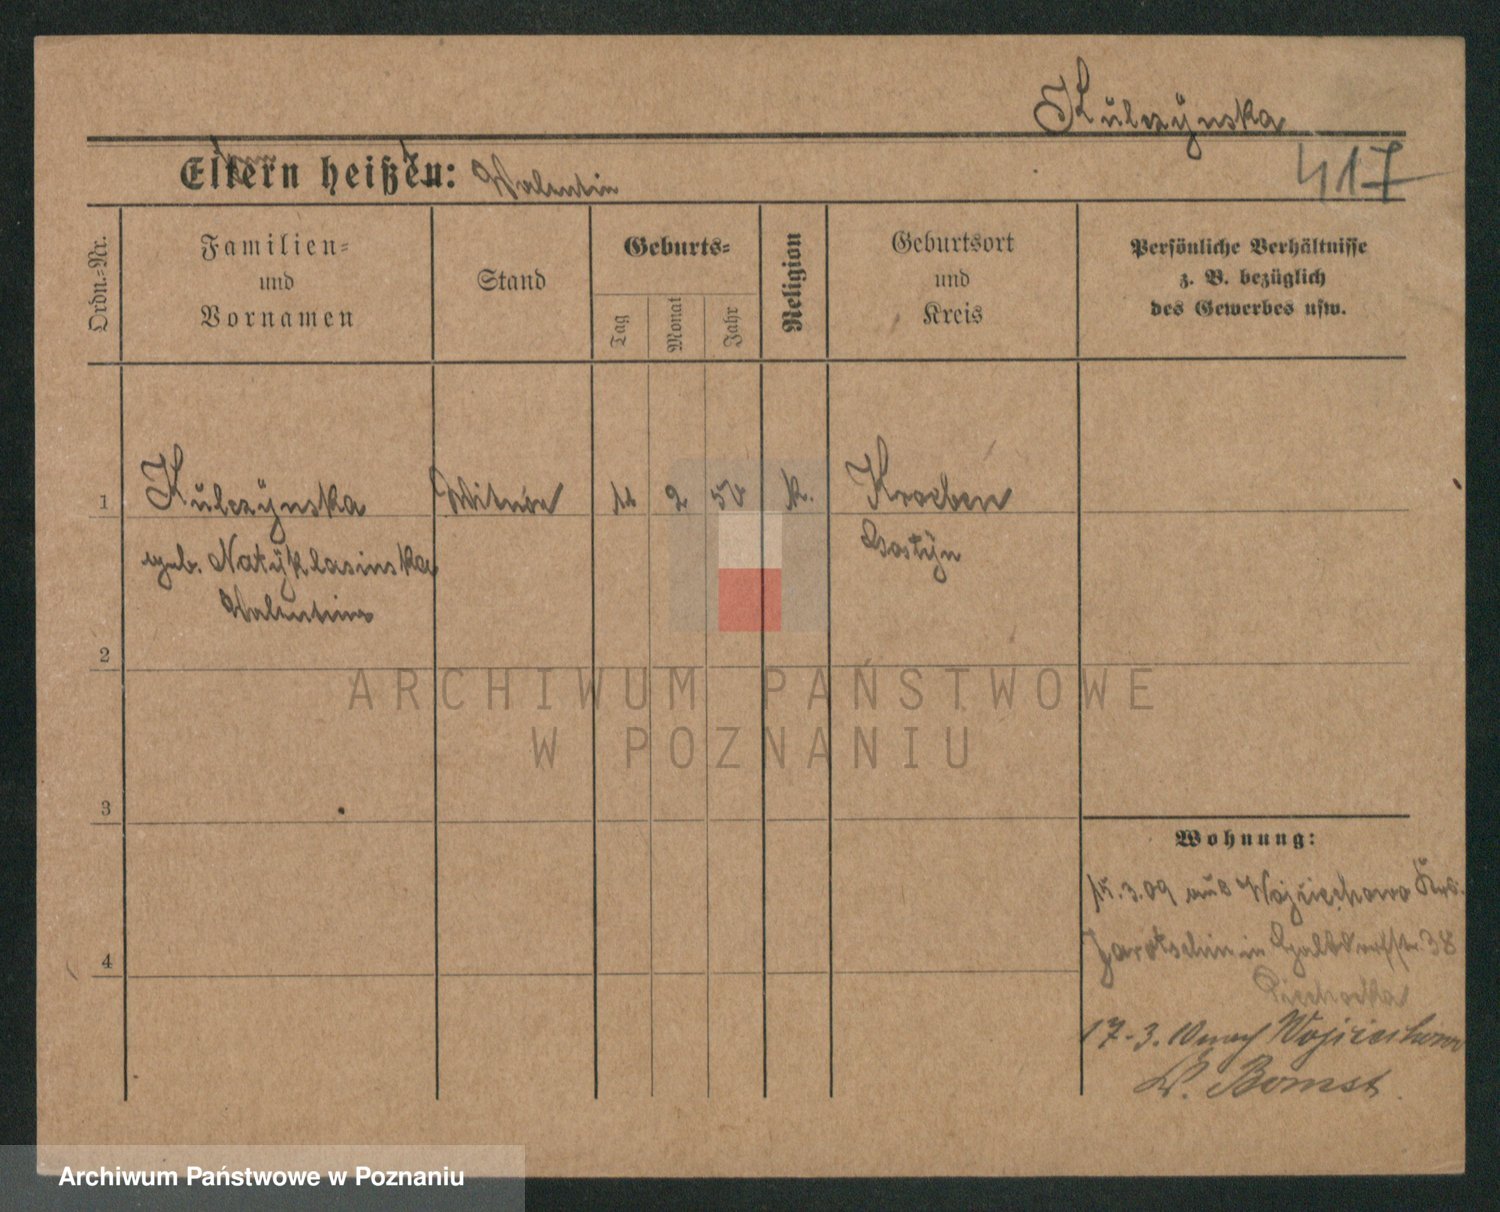 Kulczÿnska
Eltern heißen: Valentin
417
Ordn.=Nr.
Familien=
und
Vornamen
Stand
Geburts=
Tag
Monat
Jahr
Religion
Geburtsort
und
Kreis
Persönliche Verhältnisse
z. B. bezüglich
des Gewerbes usw.
1 Kulczÿnska Witwe 2 k. Kroeben
geb. Gostÿn
2
3
4
Wohnung:
15.3.09 aus Wojciechowo Krs.
Jarotschin in 38
Piechocka
17-3. 10 nach Wojciechowo
K. Bomst.
ARCHIWUM PAŃSTWOWE
W POZNANIU
Archiwum Państwowe w Poznaniu